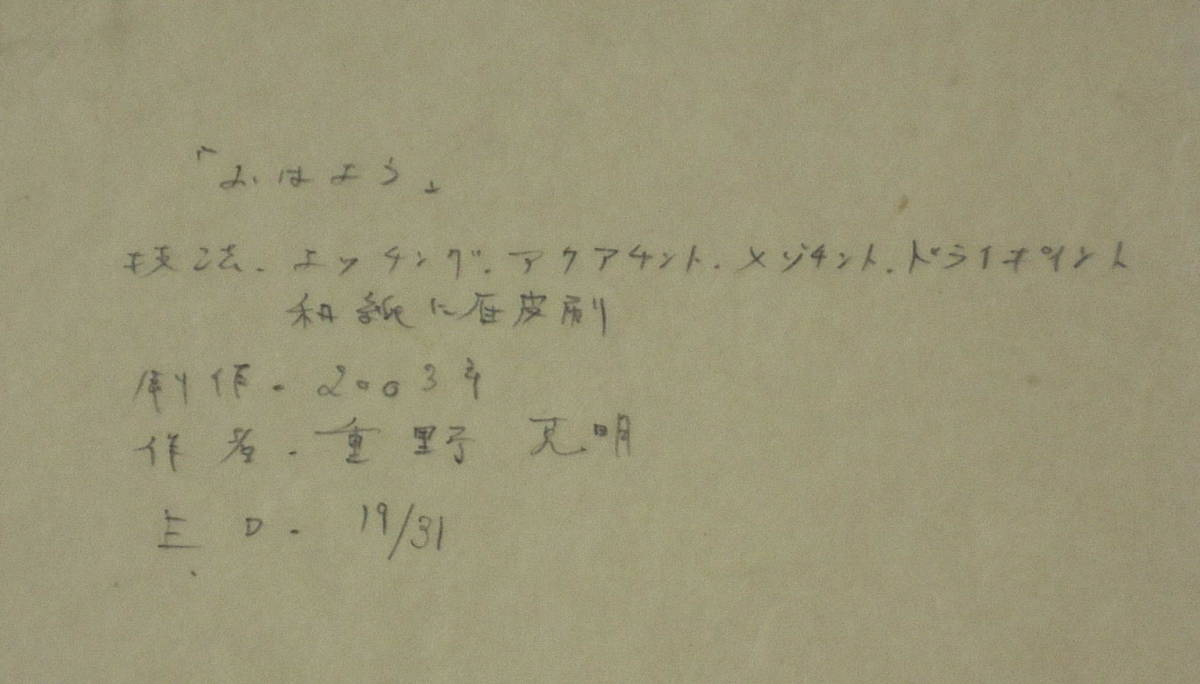 「おはよう」
技法.エッチング.アクアチント.メゾチント.ドライポイント
和紙に
制作.2003年
作者.重野克明
E D. 19/31